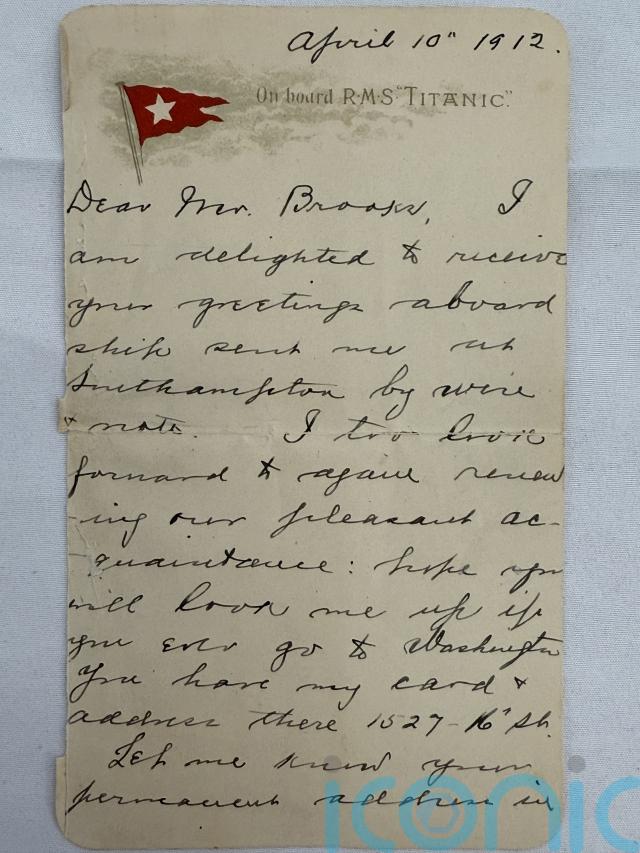 April 10" 1912.
On board R·M·S "TITANIC."
Dear Mr. Brooks, I
am delighted to receive
your greetings aboard
ship sent me at
Southampton by wire
& note. I too look
forward to again renew
-ing our pleasant ac-
quaintance: hope you
will look me up if
you ever go to Washington
You have my card &
address there 1527-16" St.
Let me know your
permanent address in
iconic